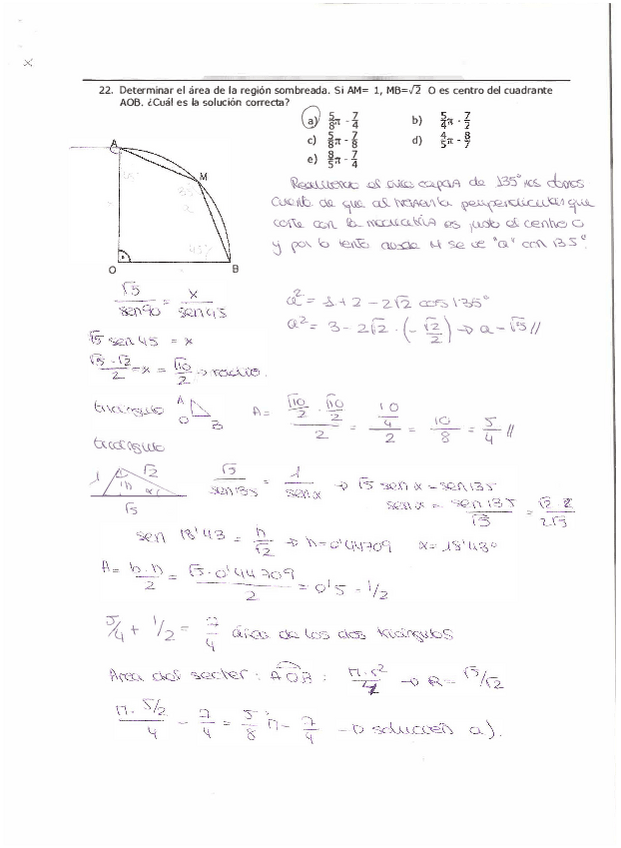 22. Determinar el área de la región sombreada. Si AM= 1, MB=√2 O es centro del cuadrante
AOB. ¿Cuál es la solución correcta?
a) 5/8 π - 7/4 b) 5/4 π - 7/2
c) 5/8 π - 7/8 d) 4/5 π - 8/7
e) 8/5 π - 7/4
A
M
135°
a
45°
O
B
el arco capaz de 135° nos damos
cuenta de que al hacer la perpendicular que
corte con la mediatriz es justo el centro O
y por lo tanto desde M se ve "a" con 135°.
√5/sen90 = x/sen45
a² = 1+2 - 2√2 cos 135°
a² = 3 - 2√2 · (-√2/2) → a = √5 //
√5 sen 45 = x
√5·√2/2 = x = √10/2 → radio.
triángulo A O B A = (√10/2 · √10/2)/2 = (10/4)/2 = 10/8 = 5/4 //
triángulo
1 √2 h x √5
√5/sen135 = 1/sen x → √5 sen x = sen 135
sen x = sen 135/√5 = √2/2√5
sen 18'43 = h/√2 → h = 0'44709 x = 18'43°
A = b·h/2 = √5·0'44709/2 = 0'5 = 1/2
5/4 + 1/2 = 7/4 área de los dos triángulos
Area del sector: AOB : π·r²/4 → R = √5/√2
π·5/2/4 - 7/4 = 5/8 π - 7/4 → solución a).